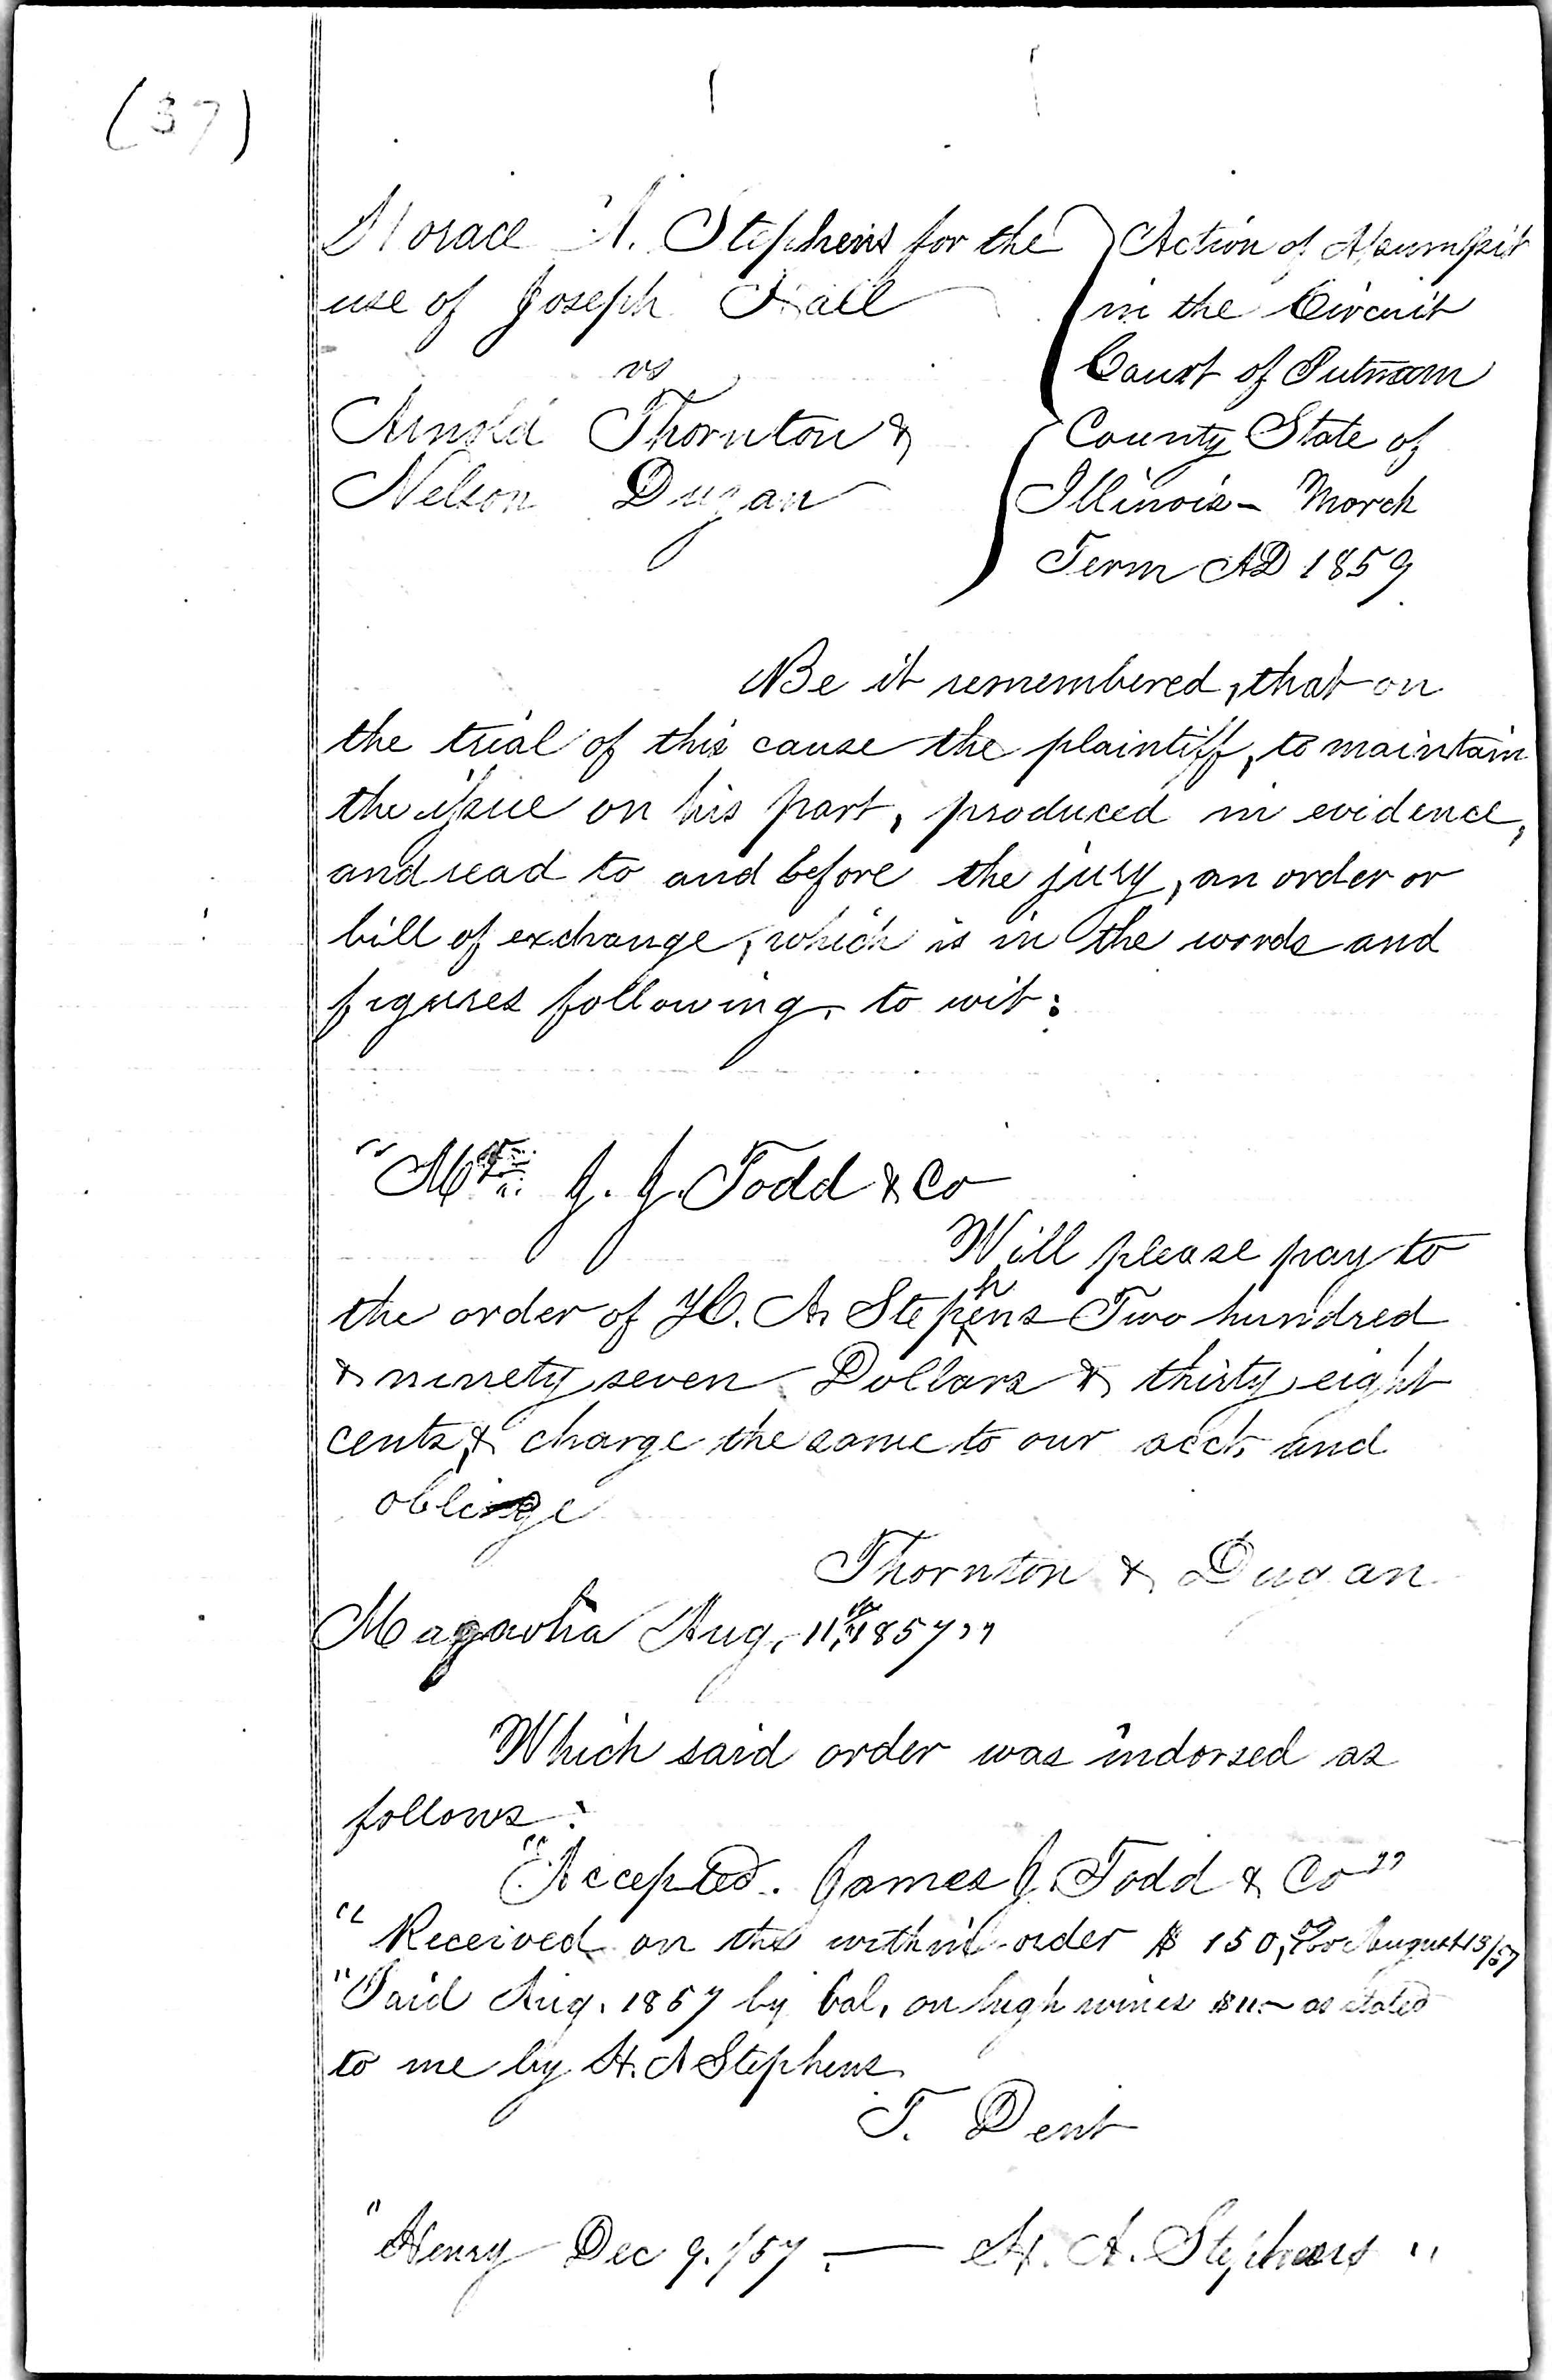 (37)
Horace A. Stephens for the
use of Joseph Hall
vs
Arnold Thornton &
Nelson Dugan
Action of Assumpsit
in the Circuit
Court of Putnam
County State of
Illinois - March
Term AD 1859
Be it remembered, that on
the trial of this cause the plaintiff, to maintain
the issue on his part, produced in evidence,
and read to and before the jury, an order or
bill of exchange, which is in the words and
figures following, to wit:
" J. J. Todd & Co
Will please pay to
the order of H. A. Stephens Two hundred
& ninety seven Dollars & thirty eight
cents, & charge the same to our acct, and
oblige
Thornton & Dugan
Magnolia Aug, 11th, 1857"
Which said order was indorsed as
follows:
"Accepted. James J. Todd & Co"
"Received on the within order $ 150, August 13/57
"Paid Aug. 1857 by bal, on high wines as stated
to me by H. A Stephens
T. Dent
"Henry Dec 9./57. — H. A. Stephens "